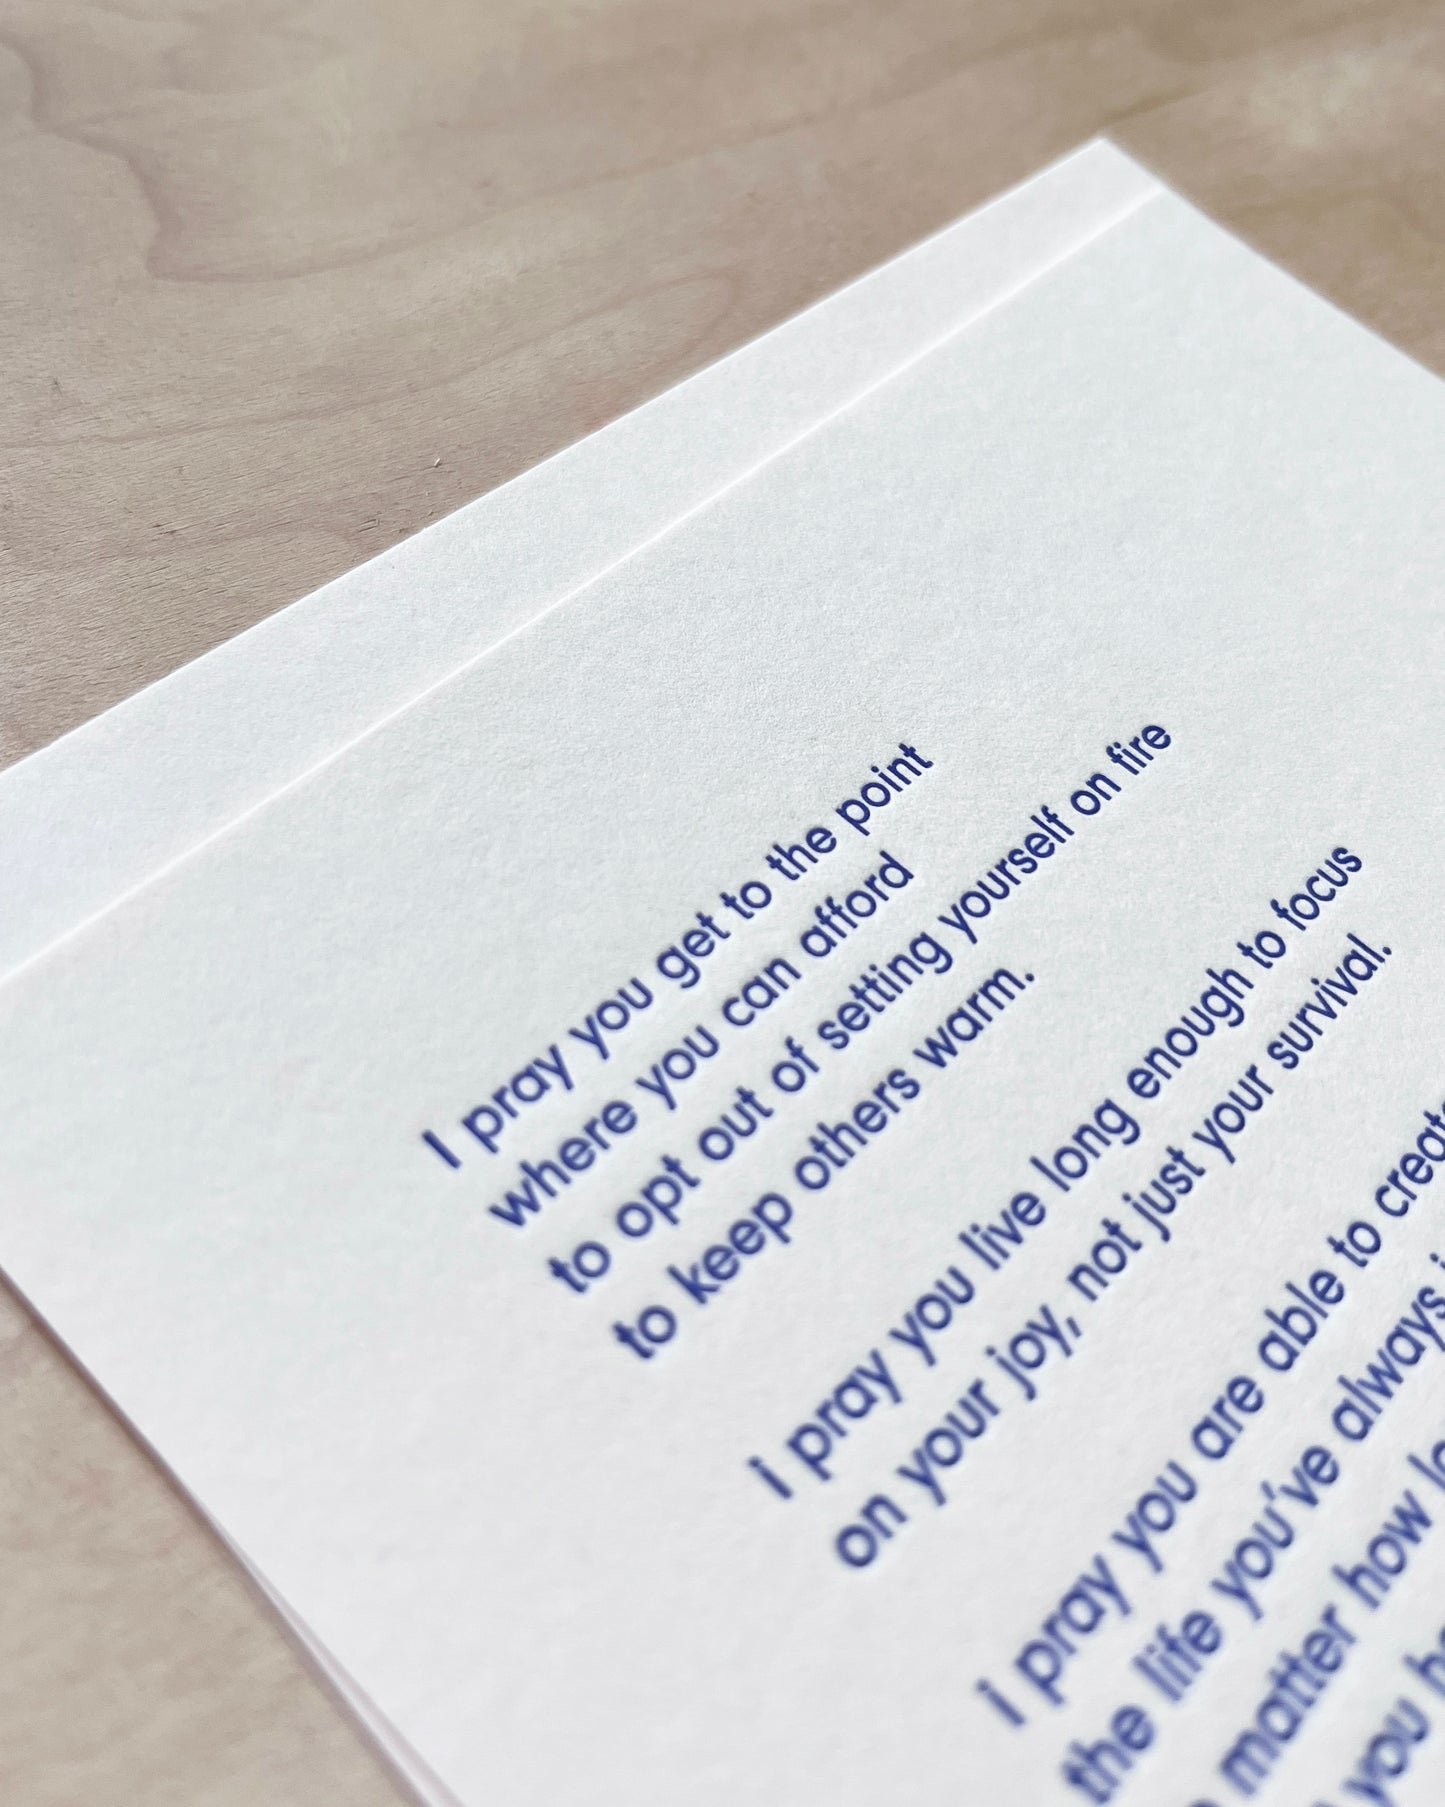 I pray you get to the point
where you can afford
to opt out of setting yourself on fire
to keep others warm.
i pray you live long enough to focus
on your joy, not just your survival.
i pray you are able to
the life you've always
matter how
you